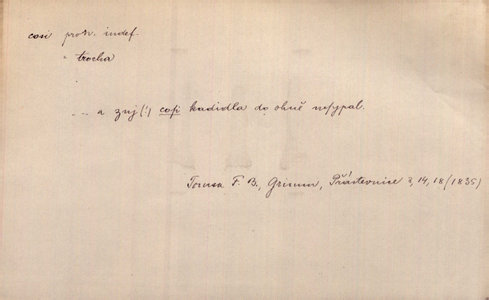 cosi pron. indef.
trocha
... a zuj(!) cosi kadidla do ohně nasypal.
Tomsa F. B., Grimm, Přástevnice 2, 14, 18 (1835)